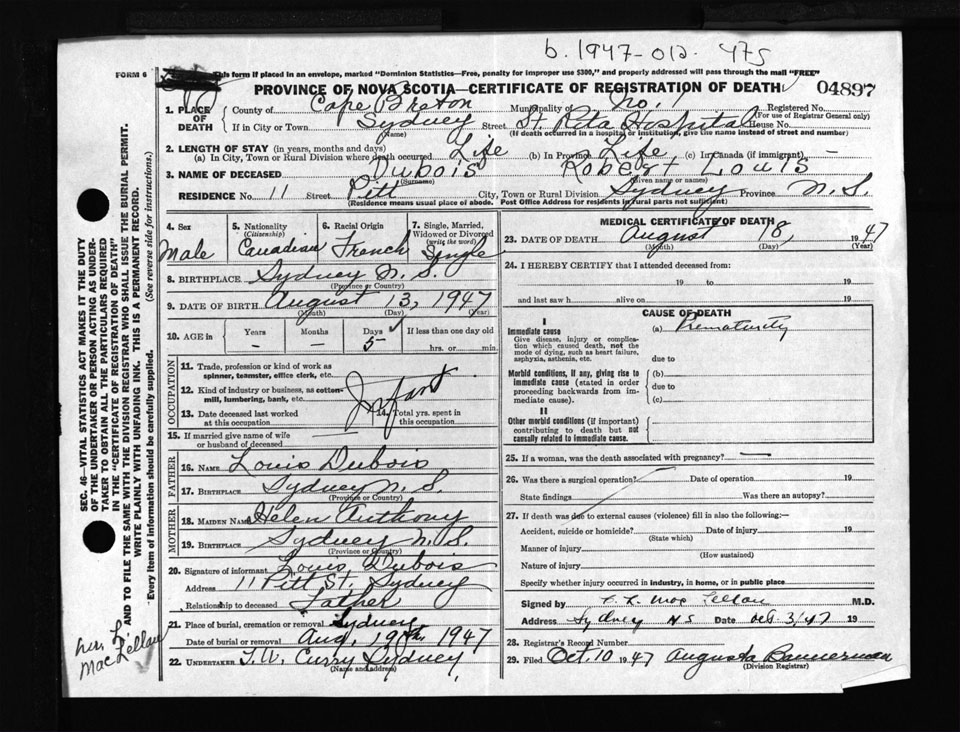 b. 1947-012. 475
FORM 6
This form if placed in an envelope, marked "Dominion Statistics—Free, penalty for improper use $300," and properly addressed will pass through the mail "FREE"
PROVINCE OF NOVA SCOTIA—CERTIFICATE OF REGISTRATION OF DEATH 04897
1. PLACE OF DEATH County of Cape Breton Municipality of No. 1 Registered No.
(For use of Registrar General only)
If in City or Town Sydney Street St. Rita Hospital House No.
(Name) (If death occurred in hospital or institution, give the name instead of street and number)
2. LENGTH OF STAY (in years, months and days)
(a) In City, Town or Rural Division where death occurred Life (b) In Province Life (c) In Canada (if immigrant) —
3. NAME OF DECEASED Dubois Robert Louis
(Surname) (Given name or names)
RESIDENCE No. 11 Street Pitt City, Town or Rural Division Sydney Province N. S.
(Residence means usual place of abode. Post Office Address for residents in rural parts not sufficient)
4. Sex Male
5. Nationality (Citizenship) Canadian
6. Racial Origin French
7. Single, Married, Widowed or Divorced (write the word) Single
8. BIRTHPLACE Sydney N. S.
(Province or Country)
9. DATE OF BIRTH August 13, 1947
(Month) (Day) (Year)
10. AGE in Years — Months — Days 5 If less than one day old hrs. or min.
OCCUPATION
11. Trade, profession or kind of work as spinner, teamster, office clerk, etc.
12. Kind of industry or business, as cotton-mill, lumbering, bank, etc.
Infant
13. Date deceased last worked at this occupation
14. Total yrs. spent in this occupation
15. If married give name of wife or husband of deceased
FATHER
16. NAME Louis Dubois
17. BIRTHPLACE Sydney N. S.
(Province or Country)
MOTHER
18. MAIDEN NAME Helen Anthony
19. BIRTHPLACE Sydney N. S.
(Province or Country)
20. Signature of informant Louis Dubois
Address 11 Pitt St, Sydney
Relationship to deceased Father
21. Place of burial, cremation or removal Sydney
Date of burial or removal Aug, 19th 1947
22. UNDERTAKER T. W. Curry Sydney
(Name and address)
MEDICAL CERTIFICATE OF DEATH
23. DATE OF DEATH August 18, 1947
(Month) (Day) (Year)
24. I HEREBY CERTIFY that I attended deceased from:
19 to 19
and last saw h alive on 19
CAUSE OF DEATH
I
Immediate cause (a) Prematurity
Give disease, injury or complication which caused death, not the mode of dying, such as heart failure, asphyxia, asthenia, etc.
due to
Morbid conditions, if any, giving rise to immediate cause (stated in order proceeding backwards from immediate cause).
(b)
due to
(c)
II
Other morbid conditions (if important) contributing to death but not causally related to immediate cause.
25. If a woman, was the death associated with pregnancy? —
26. Was there a surgical operation? Date of operation 19
State findings Was there an autopsy?
27. If death was due to external causes (violence) fill in also the following:—
Accident, suicide or homicide? Date of injury 19
(State which)
Manner of injury
(How sustained)
Nature of injury
Specify whether injury occurred in industry, in home, or in public place
Signed by Mac Lellan M.D.
Address Sydney N S Date Oct 3/47 19
28. Registrar's Record Number
29. Filed Oct, 10 1947 Augusta Bannerman
(Division Registrar)
SEC. 46—VITAL STATISTICS ACT MAKES IT THE DUTY
OF THE UNDERTAKER OR PERSON ACTING AS UNDER-
TAKER TO OBTAIN ALL THE PARTICULARS REQUIRED
IN THE "CERTIFICATE OF REGISTRATION OF DEATH"
AND TO FILE THE SAME WITH THE DIVISION REGISTRAR WHO SHALL ISSUE THE BURIAL PERMIT.
WRITE PLAINLY WITH UNFADING INK. THIS IS A PERMANENT RECORD.
Every item of information should be carefully supplied. (See reverse side for instructions.)
MacLellan